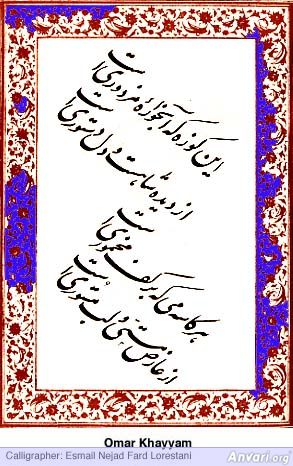 این کوزه که آبخواره مزدوری است
از دیده شاهست و دل دستوری است
هر کاسه می که بر کف مخموری است
از عارض مستی و لب مستوری است
Omar Khayyam
Calligrapher: Esmail Nejad Fard Lorestani
Anvari.org